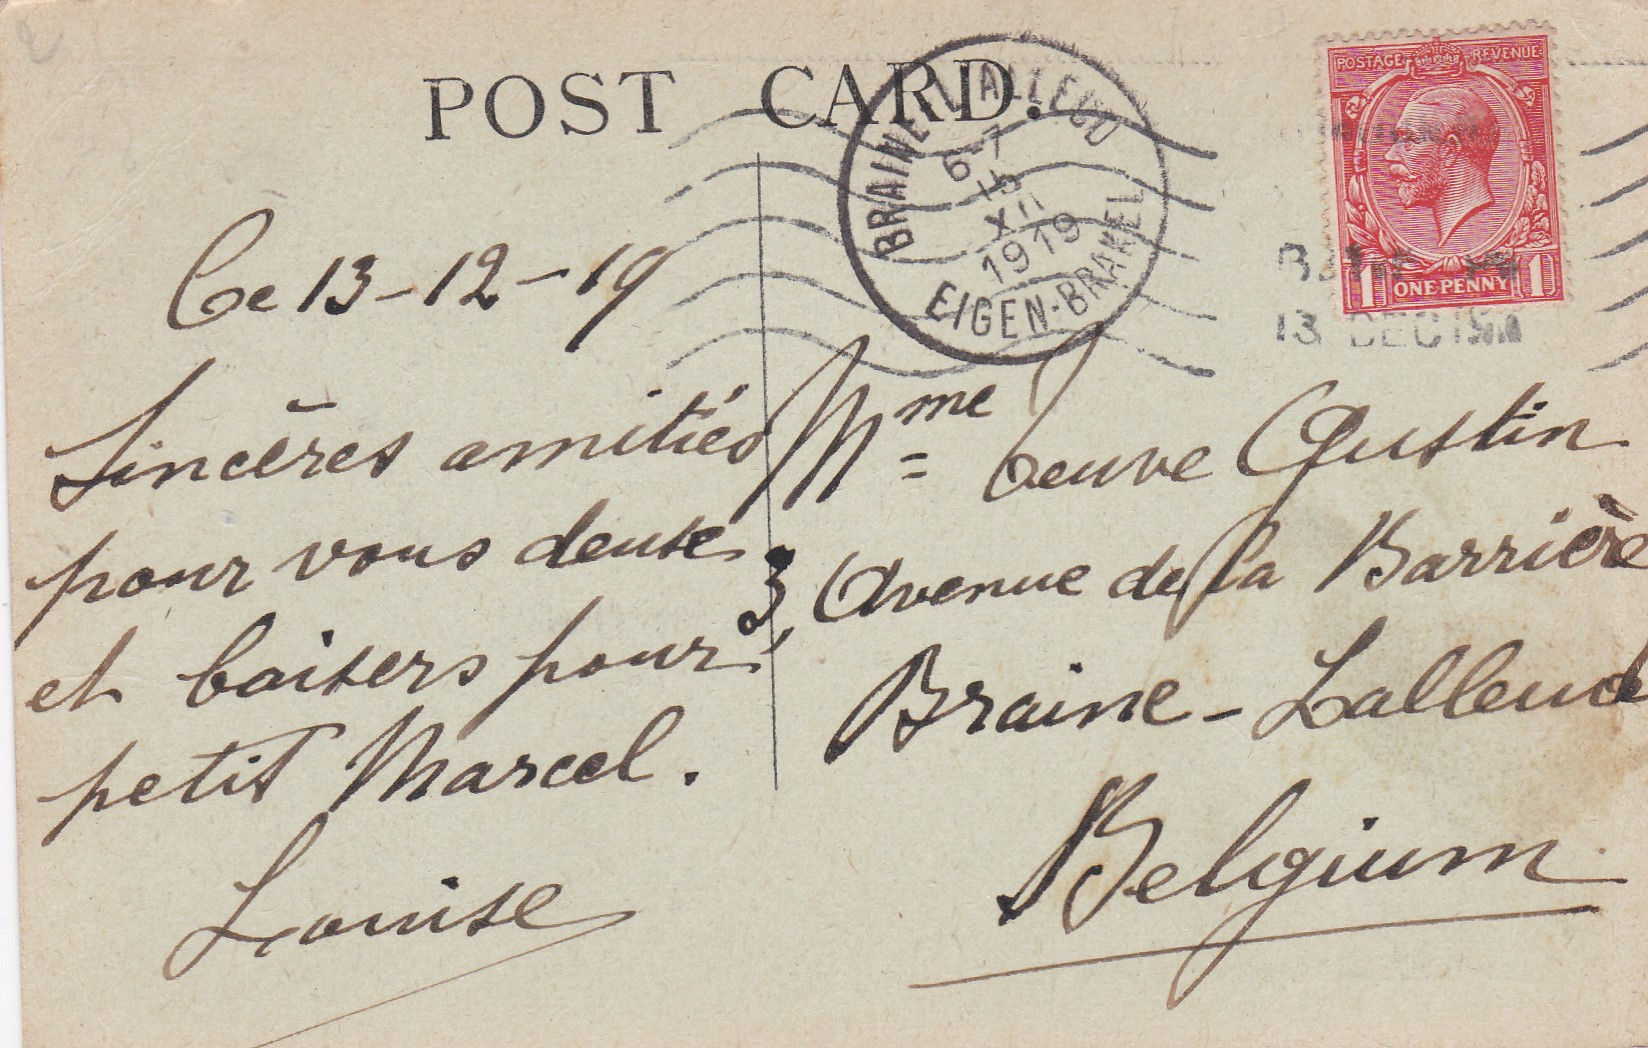 POST CARD.
BRAINE-L'ALLEUD
6-7
15
XII
1919
EIGEN-BRAKEL
POSTAGE REVENUE
1 ONE PENNY 1
13 DEC 19
Ce 13-12-19
Sincères amitiés
pour vous deuse
et baisers pour
petit Marcel.
Louise
Mme Veuve Gustin
3, Avenue de la Barrière
Braine-Lalleud
Belgium